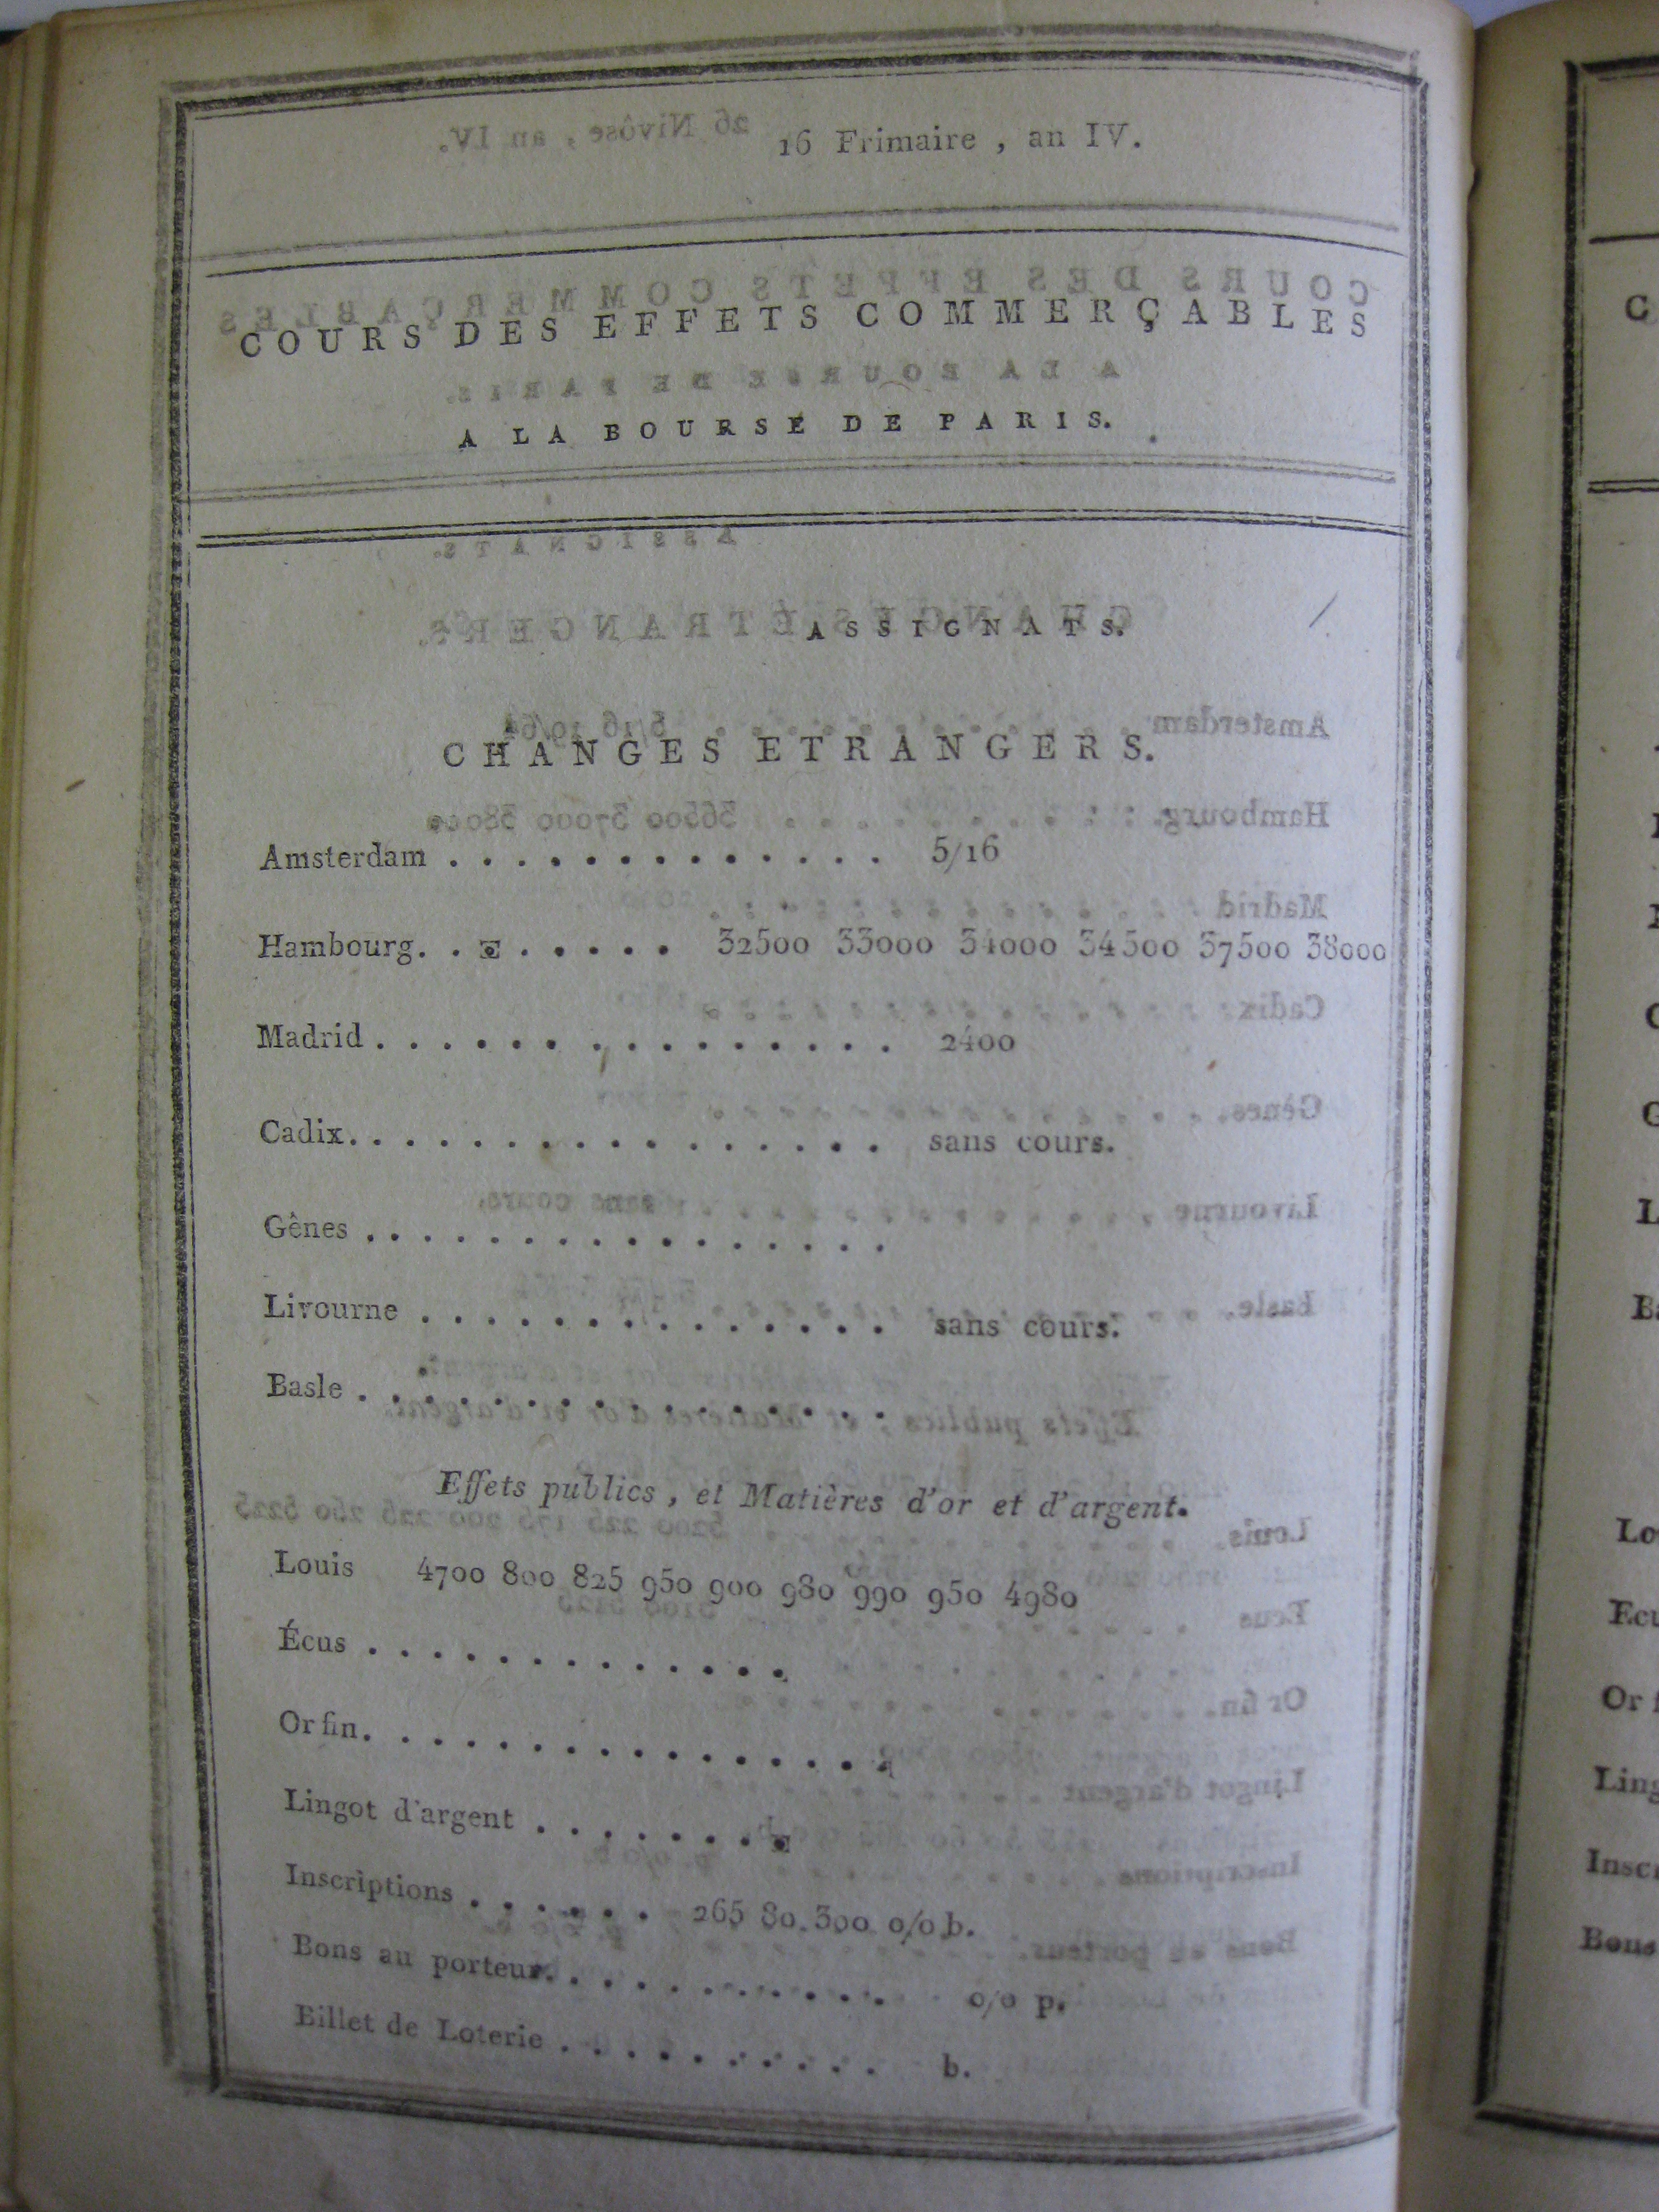 16 Frimaire , an IV.
COURS DES EFFETS COMMERÇABLES
A LA BOURSE DE PARIS.
ASSIGNATS.
CHANGES ETRANGERS.
Amsterdam . . . . . . . . . . . . . . 5/16
Hambourg. . . . . . . . 32500 33000 34000 34500 37500 38000
Madrid . . . . . . . . . . . . . . . . 2400
Cadix. . . . . . . . . . . . . . . . . sans cours.
Gênes . . . . . . . . . . . . . . . . .
Livourne . . . . . . . . . . . . . . . sans cours.
Basle . . . . . . . . . . . . . . . . .
Effets publics , et Matières d'or et d'argent.
Louis 4700 800 825 950 900 980 990 950 4980
Écus . . . . . . . . . . . . . .
Or fin. . . . . . . . . . . . . . . . .
Lingot d'argent . . . . . . . .
Inscriptions . . . . . . 265 80 300 0/0 b.
Bons au porteur. . . . . . . . . . . . 0/0 p.
Billet de Loterie . . . . . . . . . . b.